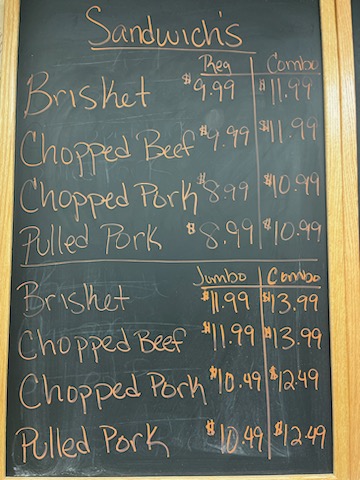 Sandwich's
Reg Combo
Brisket $9.99 $11.99
Chopped Beef $9.99 $11.99
Chopped Pork $8.99 $10.99
Pulled Pork $8.99 $10.99
Jumbo Combo
Brisket $11.99 $13.99
Chopped Beef $11.99 $13.99
Chopped Pork $10.49 $12.49
Pulled Pork $10.49 $12.49